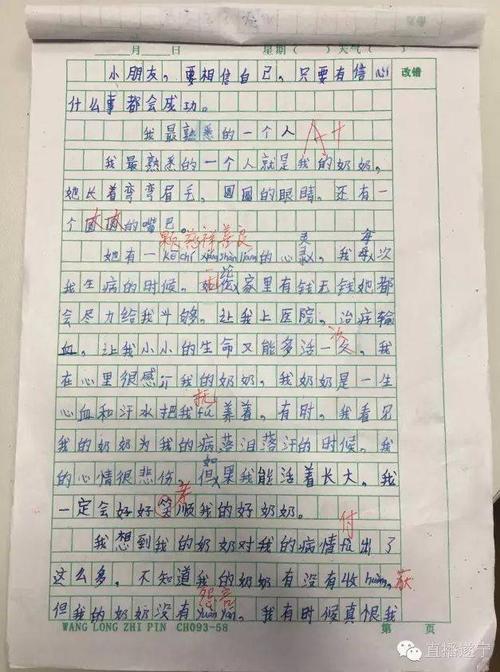 月 日 星期( ) 天气( )
小朋友，要相信自己，只要有信心 改错
什么事都会成功。
我最熟悉的一个人 A+
我最熟悉的一个人就是我的奶奶，
她长着弯弯眉毛，圆圆的眼睛。还有一
个圆圆的嘴巴。
颗慈祥善良 灵 每
她有一kē cí xiáng shàn liáng的心灵。我每次
我生病的时候。家里有钱无钱她都
会尽力给我斗够，让我上医院。治病输
血。让我小小的生命又能多活一次。我
在心里很感谢我的奶奶。我奶奶是一生
抚
心血和汗水把我fǔ养着。有时。我看见
我的奶奶为我的病落泪落汗的时候。我
如
的心情很悲伤。但果我能活着长大。我
孝
一定会好好笑顺我的好奶奶。
付
我想到我的奶奶对我的病情拉出了
这么多。不知道我的奶奶有没有收huò。获
怨言
但我的奶奶没有yuàn yán。我有时候真恨我
WANG LONG ZHI PIN CH093-58 第 页
直播遂宁